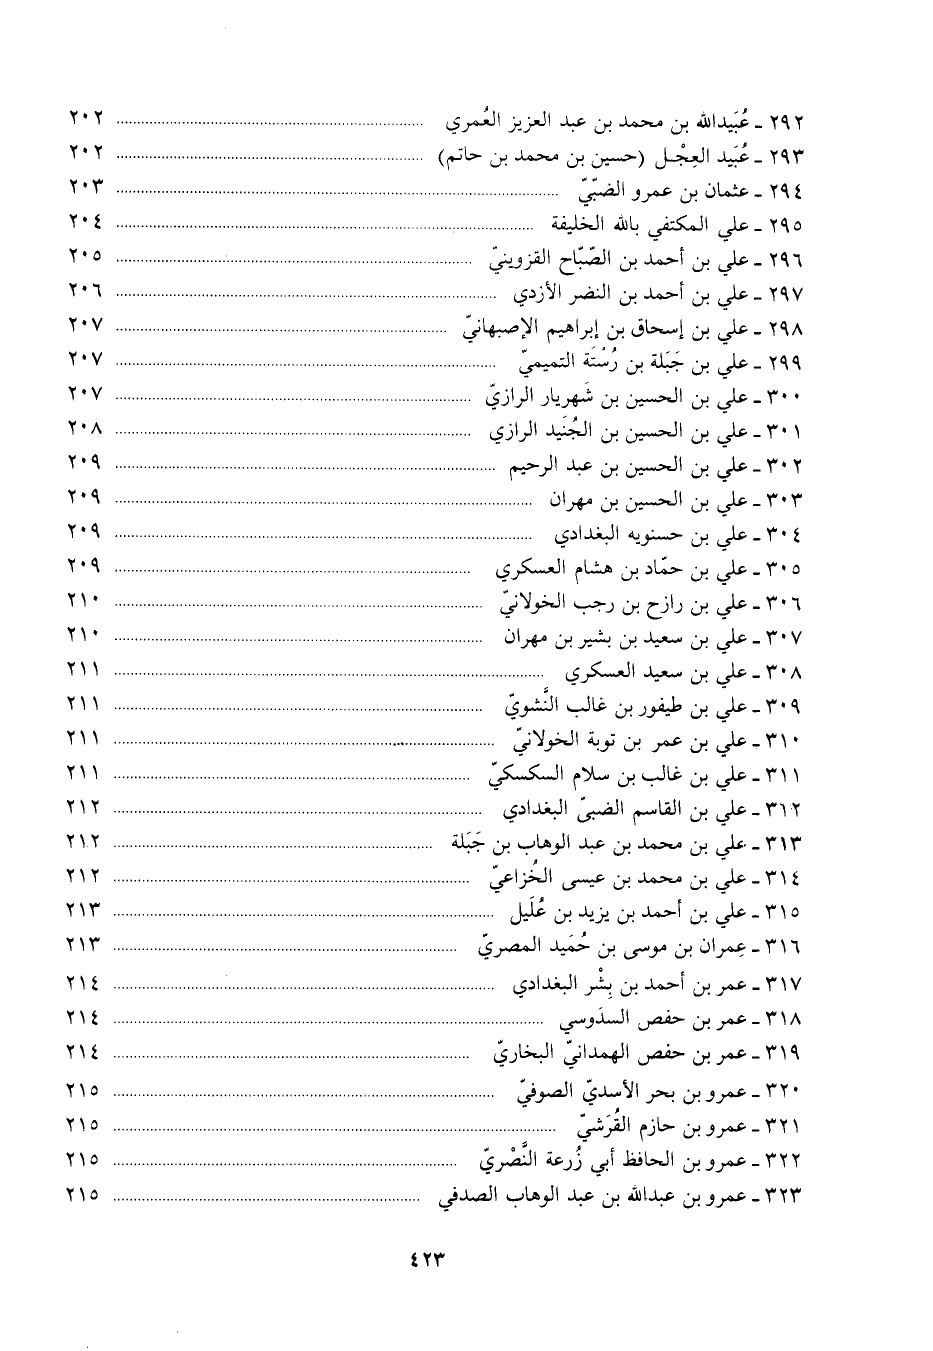 ٢٩٢ - عُبَيدالله بن محمد بن عبد العزيز العُمري ........ ٢٠٢
٢٩٣ - عُبَيد العِجْـل (حسين بن محمد بن حاتم) ........ ٢٠٢
٢٩٤ - عثمان بن عمرو الضبّيّ ........ ٢٠٣
٢٩٥ - علي المكتفي بالله الخليفة ........ ٢٠٤
٢٩٦ - علي بن أحمد بن الصّبّاح القزوينيّ ........ ٢٠٥
٢٩٧ - علي بن أحمد بن النضر الأزدي ........ ٢٠٦
٢٩٨ - علي بن إسحاق بن إبراهيم الإصبهانيّ ........ ٢٠٧
٢٩٩ - علي بن جَبَلة بن رُسْتَة التميميّ ........ ٢٠٧
٣٠٠ - علي بن الحسين بن شَهريار الرازيّ ........ ٢٠٧
٣٠١ - علي بن الحسين بن الجُنَيد الرازي ........ ٢٠٨
٣٠٢ - علي بن الحسين بن عبد الرحيم ........ ٢٠٩
٣٠٣ - علي بن الحسين بن مهران ........ ٢٠٩
٣٠٤ - علي بن حسنويه البغدادي ........ ٢٠٩
٣٠٥ - علي بن حمّاد بن هشام العسكري ........ ٢٠٩
٣٠٦ - علي بن رازح بن رجب الخولانيّ ........ ٢١٠
٣٠٧ - علي بن سعيد بن بشير بن مهران ........ ٢١٠
٣٠٨ - علي بن سعيد العسكري ........ ٢١١
٣٠٩ - علي بن طيفور بن غالب النَّشويّ ........ ٢١١
٣١٠ - علي بن عمر بن توبة الخولانيّ ........ ٢١١
٣١١ - علي بن غالب بن سلام السكسكيّ ........ ٢١١
٣١٢ - علي بن القاسم الضبىّ البغدادي ........ ٢١٢
٣١٣ - علي بن محمد بن عبد الوهاب بن جَبَلة ........ ٢١٢
٣١٤ - علي بن محمد بن عيسى الخُزاعيّ ........ ٢١٢
٣١٥ - علي بن أحمد بن يزيد بن عُلَيل ........ ٢١٣
٣١٦ - عِمران بن موسى بن حُمَيد المصريّ ........ ٢١٣
٣١٧ - عمر بن أحمد بن بِشْر البغدادي ........ ٢١٤
٣١٨ - عمر بن حفص السدَوسي ........ ٢١٤
٣١٩ - عمر بن حفص الهمدانيّ البخاريّ ........ ٢١٤
٣٢٠ - عمرو بن بحر الأسديّ الصوفيّ ........ ٢١٥
٣٢١ - عمرو بن حازم القُرَشيّ ........ ٢١٥
٣٢٢ - عمرو بن الحافظ أبي زُرعة النَّصْريّ ........ ٢١٥
٣٢٣ - عمرو بن عبدالله بن عبد الوهاب الصدفي ........ ٢١٥
٤٢٣